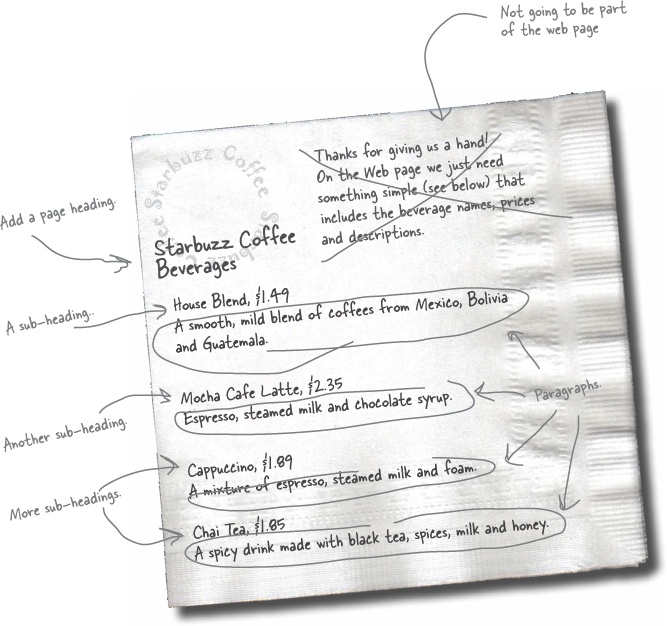 Not going to be part
of the web page
Thanks for giving us a hand!
On the Web page we just need
something simple (see below) that
includes the beverage names, prices
and descriptions.
Add a page heading.
Starbuzz Coffee
Starbuzz Coffee
Beverages
House Blend, $1.49
A sub-heading.
A smooth, mild blend of coffees from Mexico, Bolivia
and Guatemala.
Mocha Cafe Latte, $2.35
Espresso, steamed milk and chocolate syrup.
Paragraphs.
Another sub-heading.
Cappuccino, $1.89
A mixture of espresso, steamed milk and foam.
More sub-headings.
Chai Tea, $1.85
A spicy drink made with black tea, spices, milk and honey.